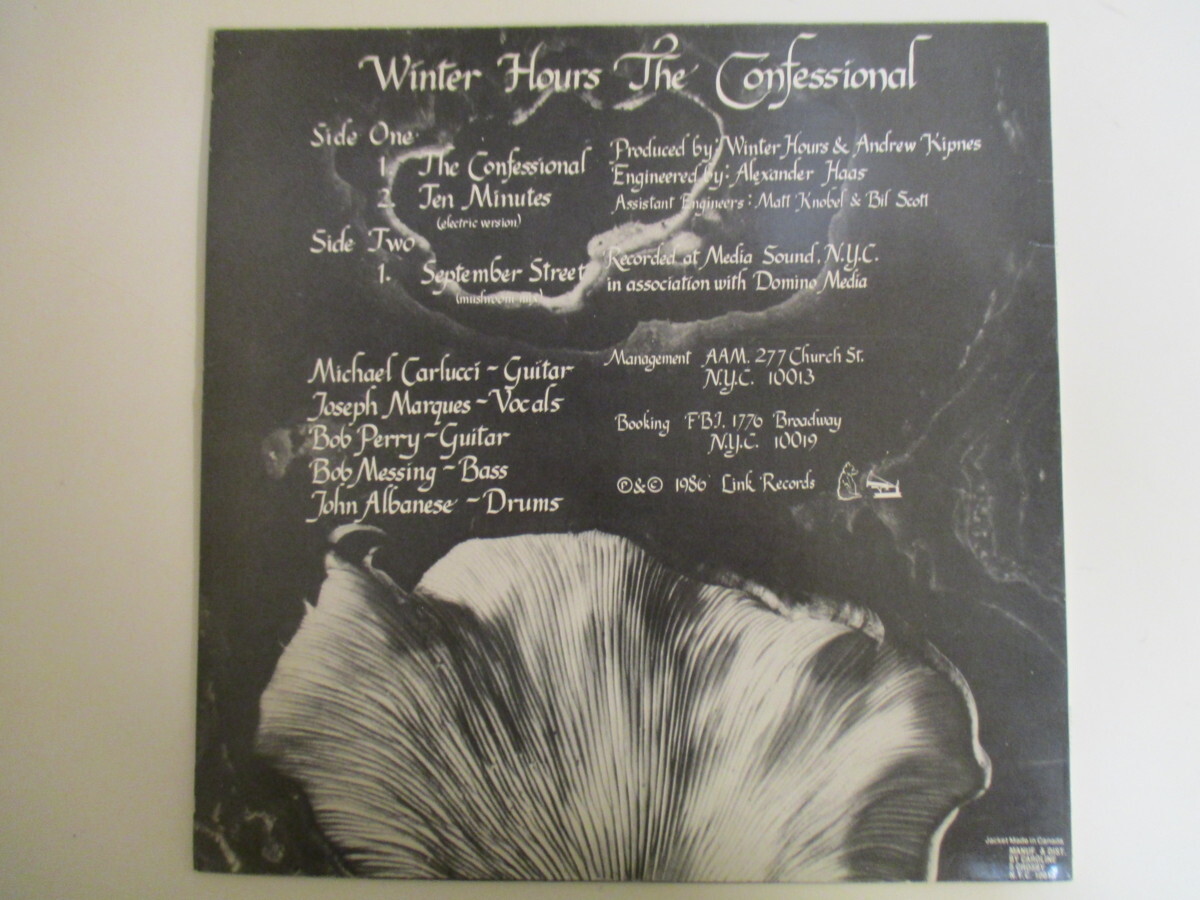 Winter Hours The Confessional
Side One
1. The Confessional
2. Ten Minutes
(electric version)
Side Two
1. September Street
(mushroom mix)
Produced by: Winter Hours & Andrew Kipnes
Engineered by: Alexander Haas
Assistant Engineers: Matt Knobel & Bil Scott
Recorded at Media Sound, N.Y.C.
in association with Domino Media
Michael Carlucci ~ Guitar
Joseph Marques ~ Vocals
Bob Perry ~ Guitar
Bob Messing ~ Bass
John Albanese ~ Drums
Management AAM. 277 Church St.
N.Y.C. 10013
Booking F.B.I. 1776 Broadway
N.Y.C. 10019
Ⓟ&© 1986 Link Records
Jacket Made in Canada
MANUF. & DIST.
BY CAROLINE
5 CROSBY
N.Y.C.